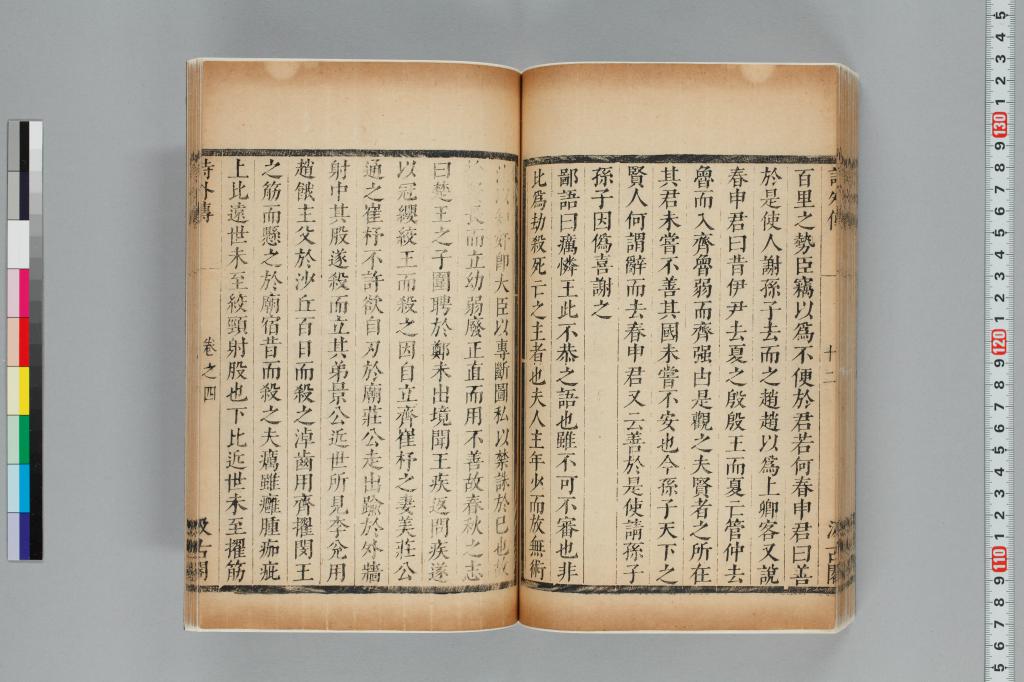 詩外傳 十二 汲古閣
百里之勢臣竊以爲不便於君若何春申君曰善
於是使人謝孫子去而之趙趙以爲上卿客又說
春申君曰昔伊尹去夏之殷殷王而夏亡管仲去
魯而入齊魯弱而齊强由是觀之夫賢者之所在
其君未嘗不善其國未嘗不安也今孫子天下之
賢人何謂辭而去春申君又云善於是使請孫子
孫子因僞喜謝之
鄙語曰癘憐王此不恭之語也雖不可不審也非
比爲劫殺死亡之主者也夫人主年少而放無術
奸卽大臣以專斷圖私以禁誅於已也故
長而立幼弱廢正直而用不善故春秋之志
曰楚王之子圍聘於鄭未出境聞王疾返問疾遂
以冠纓絞王而殺之因自立齊崔杼之妻美莊公
通之崔杼不許欲自刃於廟莊公走出踰於外牆
射中其股遂殺而立其弟景公近世所見李兌用
趙餓主父於沙丘百日而殺之淖齒用齊擢閔王
之筋而懸之於廟宿昔而殺之夫癘雖癰腫痂疵
上比遠世未至絞頸射股也下比近世未至擢筋
詩外傳 卷之四 汲古閣
130
120
110